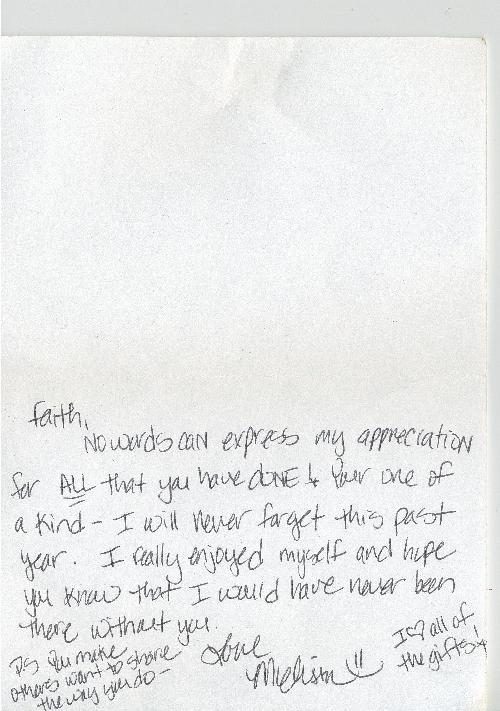 Faith,
No words can express my appreciation
for ALL that you have DONE! Your one of
a kind - I will never forget this past
year. I really enjoyed myself and hope
you know that I would have never been
there without you.
Love
Melissa
PS You make
others want to share
the way you do -
I ♡ all of
the gifts!